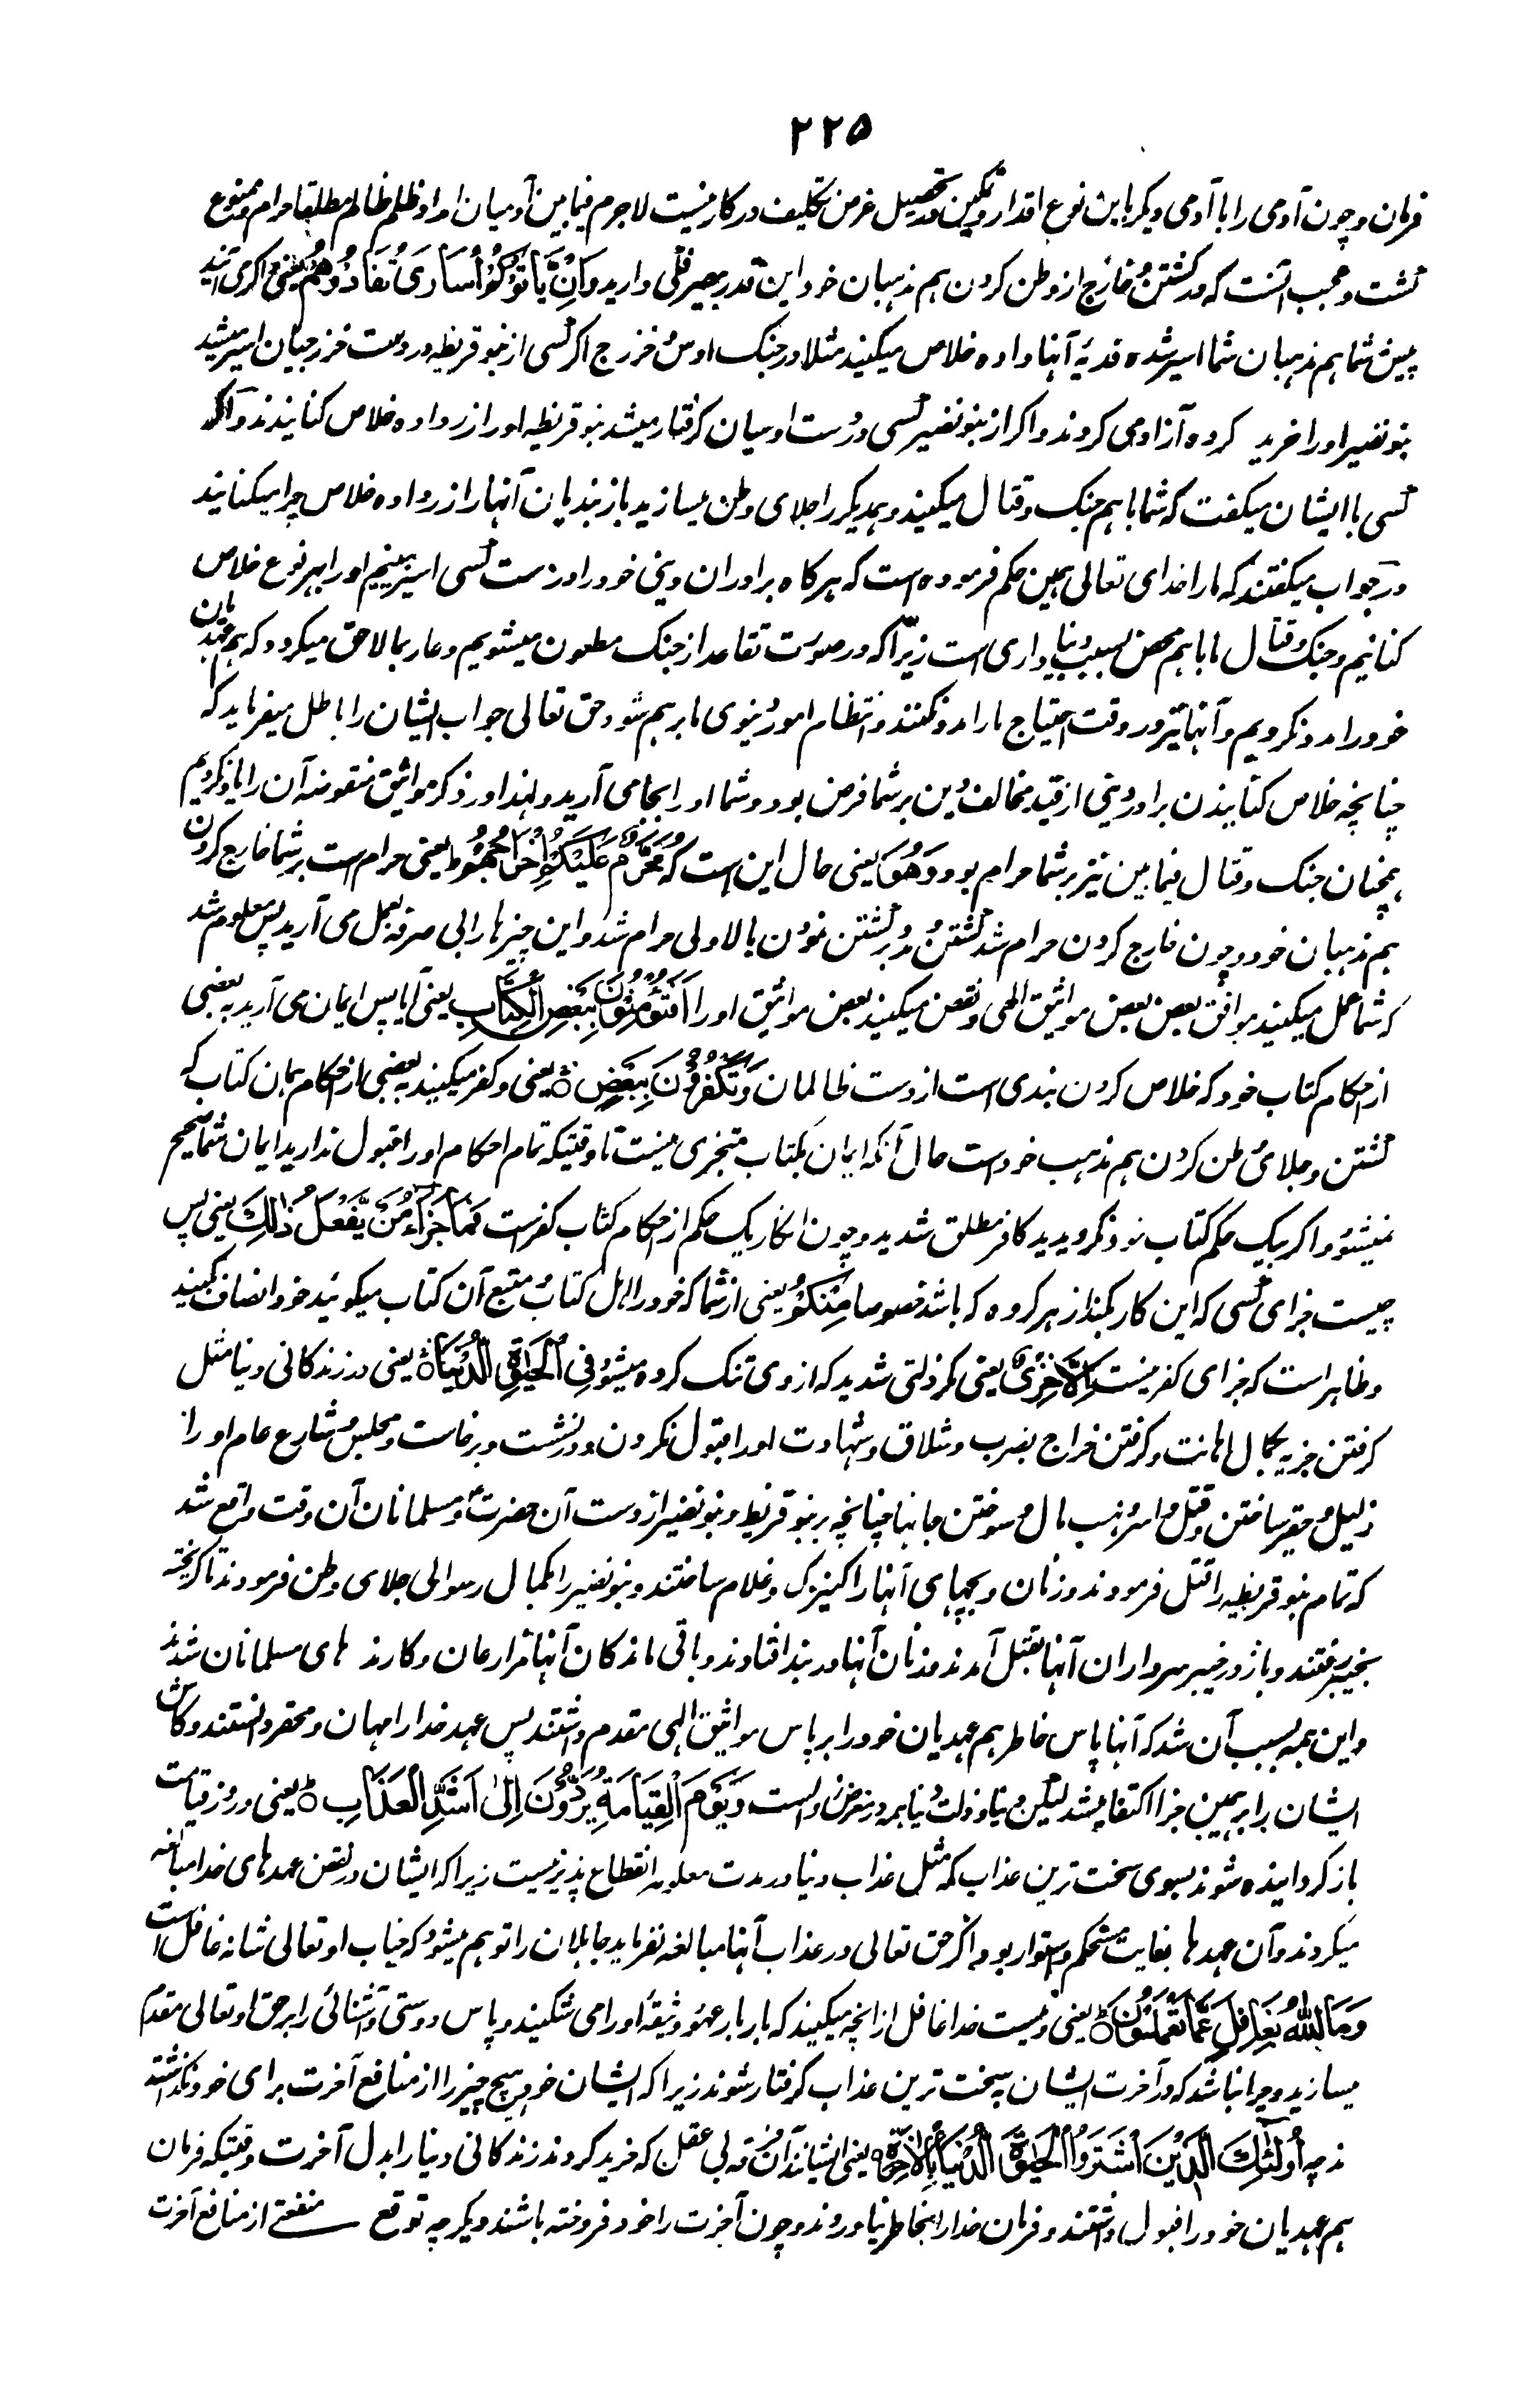 ۲۲۵
فرمان و چون آدمی را با آدمی دیگر باین نوع اقدار و تمکین و تحصیل غرض تکلیف در کار نیست لاجرم فیما بین آدمیان امداد ظلم ظالم مطلقا حرام و ممنوع
گشت و عجب آنست که در کشتن و خارج از وطن کردن هم مذهبان خود این قدر بیصرفگی دارید وَاِنْ يَّاْتُوْكُمْ اُسَارَى تُفَادُوْهُمْ یعنی و اگر می آیند
پیش شما هم مذهبان شما اسیر شده فدیهٔ آنها داده خلاص میکنید مثلا در جنگ اوس و خزرج اگر کسی از بنو قریظه در دست خزرجیان اسیر میشد
بنو نضیر او را خرید کرده آزاد می کردند و اگر از بنو نضیر کسی در دست اوسیان گرفتار میشد بنو قریظه او را زر داده خلاص کنانیدند و اگر
کسی با ایشان میگفت که شما باهم جنگ و قتال میکنید و همدیگر را جلای وطن میسازید باز بندیان آنها را زر داده خلاص چرا میکنانید
در جواب میگفتند که ما را خدای تعالی همین حکم فرموده است که هرگاه برادران دینی خود را در دست کسی اسیر بینیم او را بهر نوع خلاص
کنانیم و جنگ و قتال ما باهم محض بسبب دنیاداری است زیرا که در صورت تقاعد از جنگ مطعون میشویم و عار بما لاحق میگردد که هم عهدیان
خود را مدد نکردیم و آنها نیز در وقت احتیاج ما را مدد نکنند و انتظام امور دنیوی ما برهم شود حق تعالی جواب ایشان را باطل میفرماید که
چنانچه خلاص کنانیدن برادر دینی از قید مخالف دین بر شما فرض بود و شما او را بجا می آرید و لهذا در ذکر مواثیق منقوضه آن را یاد نکردیم
همچنان جنگ و قتال فیما بین نیز بر شما حرام بود وَهُوَ یعنی حال این است که مُحَرَّمٌ عَلَيْكُمْ اِخْرَاجُهُمْ ط یعنی حرام است بر شما خارج کردن
هم مذهبان خود و چون خارج کردن حرام شد کشتن و مدد بر کشتن نمودن بالاولی حرام شد و این چیزها را بی صرفه بعمل می آرید پس معلوم شد
که شما عمل میکنید موافق بعض بعض مواثیق الهی و نقض میکنید بعض مواثیق او را اَفَتُؤْمِنُوْنَ بِبَعْضِ الْكِتَابِ یعنی آیا پس ایمان می آرید به بعضی
از احکام کتاب خود که خلاص کردن بندی است از دست ظالمان وَتَكْفُرُوْنَ بِبَعْضٍ ۚ یعنی و کفر میکنید به بعضی از احکام همان کتاب که
کشتن و جلای وطن کردن هم مذهب خود است حال آنکه ایمان بکتاب متجزی نیست تا وقتیکه تمام احکام او را قبول ندارید ایمان شما صحیح
نمیشود و اگر بیک حکم کتاب خود نگرویدید کافر مطلق شدید و چون انکار یک حکم از احکام کتاب کفر است فَمَا جَزَآءُ مَنْ يَّفْعَلُ ذٰلِكَ یعنی پس
چیست جزای کسی که این کار بکند از هر گروه که باشد خصوصا مِنْكُمْ یعنی از شما که خود را اهل کتاب و متبع آن کتاب میگوئید خود انصاف کنید
و ظاهر است که جزای کفر نیست اِلَّا خِزْيٌ یعنی مگر ذلتی شدید که از وی تنگ کرده میشود فِى الْحَيٰوةِ الدُّنْيَا ۚ یعنی در زندگانی دنیا مثل
گرفتن جزیه بکمال اهانت و گرفتن خراج بضرب و شلاق و شهادت او را قبول نکردن و در نشست و برخاست و مجلس و مشارع عام او را
ذلیل و حقیر ساختن و قتل و اسر و نهب مال و سوختن جانها چنانچه بر بنو قریظه و بنو نضیر از دست آن حضرت و مسلمانان آن وقت واقع شد
که تمام بنو قریظه را قتل فرمودند و زنان و بچهای آنها را کنیزک و غلام ساختند و بنو نضیر را بکمال رسوائی جلای وطن فرمودند تا گریخته
بخیبر رفتند و باز در خیبر سرداران آنها بقتل آمدند و زنان آنها در بند افتادند و باقی ماندگان آنها مزارعان و کارنده های مسلمانان شدند
و این همه بسبب آن شد که آنها پاس خاطر هم عهدیان خود را بر پاس مواثیق الهی مقدم داشتند پس عهد خدا را مهان و محقر دانستند و کاش
ایشان را بر همین جزا اکتفا میشد لیکن دنیا و ذلت دنیا بهر دو در معرض زوال است وَيَوْمَ الْقِيَامَةِ يُرَدُّوْنَ اِلٰى اَشَدِّ الْعَذَابِ ط یعنی و روز قیامت
باز گردانیده شوند بسوی سخت ترین عذاب که مثل عذاب دنیا در مدت معلومه انقطاع پذیر نیست زیرا که ایشان در نقض عهدهای خدا مبالغه
میکردند و آن عهدها بغایت مستحکم و استوار بود و اگر حق تعالی در عذاب آنها مبالغه نفرماید جاهلان را توهم میشود که جناب او تعالی شانه غافل است
وَمَا اللهُ بِغَافِلٍ عَمَّا تَعْمَلُوْنَ ط یعنی و نیست خدا غافل از آنچه میکنید که بار بار عهود وثیقهٔ او را می شکنید و پاس دوستی و آشنائی را بر حق او تعالی مقدم
میسازید و چرا نباشد که در آخرت ایشان به سخت ترین عذاب گرفتار شوند زیرا که ایشان خود هیچ چیز را از منافع آخرت برای خود نگذاشته
اند چه اُولٰٓئِكَ الَّذِيْنَ اشْتَرَوُا الْحَيٰوةَ الدُّنْيَا بِالْاٰخِرَةِ یعنی ایشانند آن فرقه بی عقل که خرید کردند زندگانی دنیا را بدل آخرت وقتیکه فرمان
هم عهدیان خود را قبول داشتند و فرمان خدا را بخاطر نیاوردند و چون آخرت را خود فروخته باشند دیگر چه توقع منفعتے از منافع آخرت